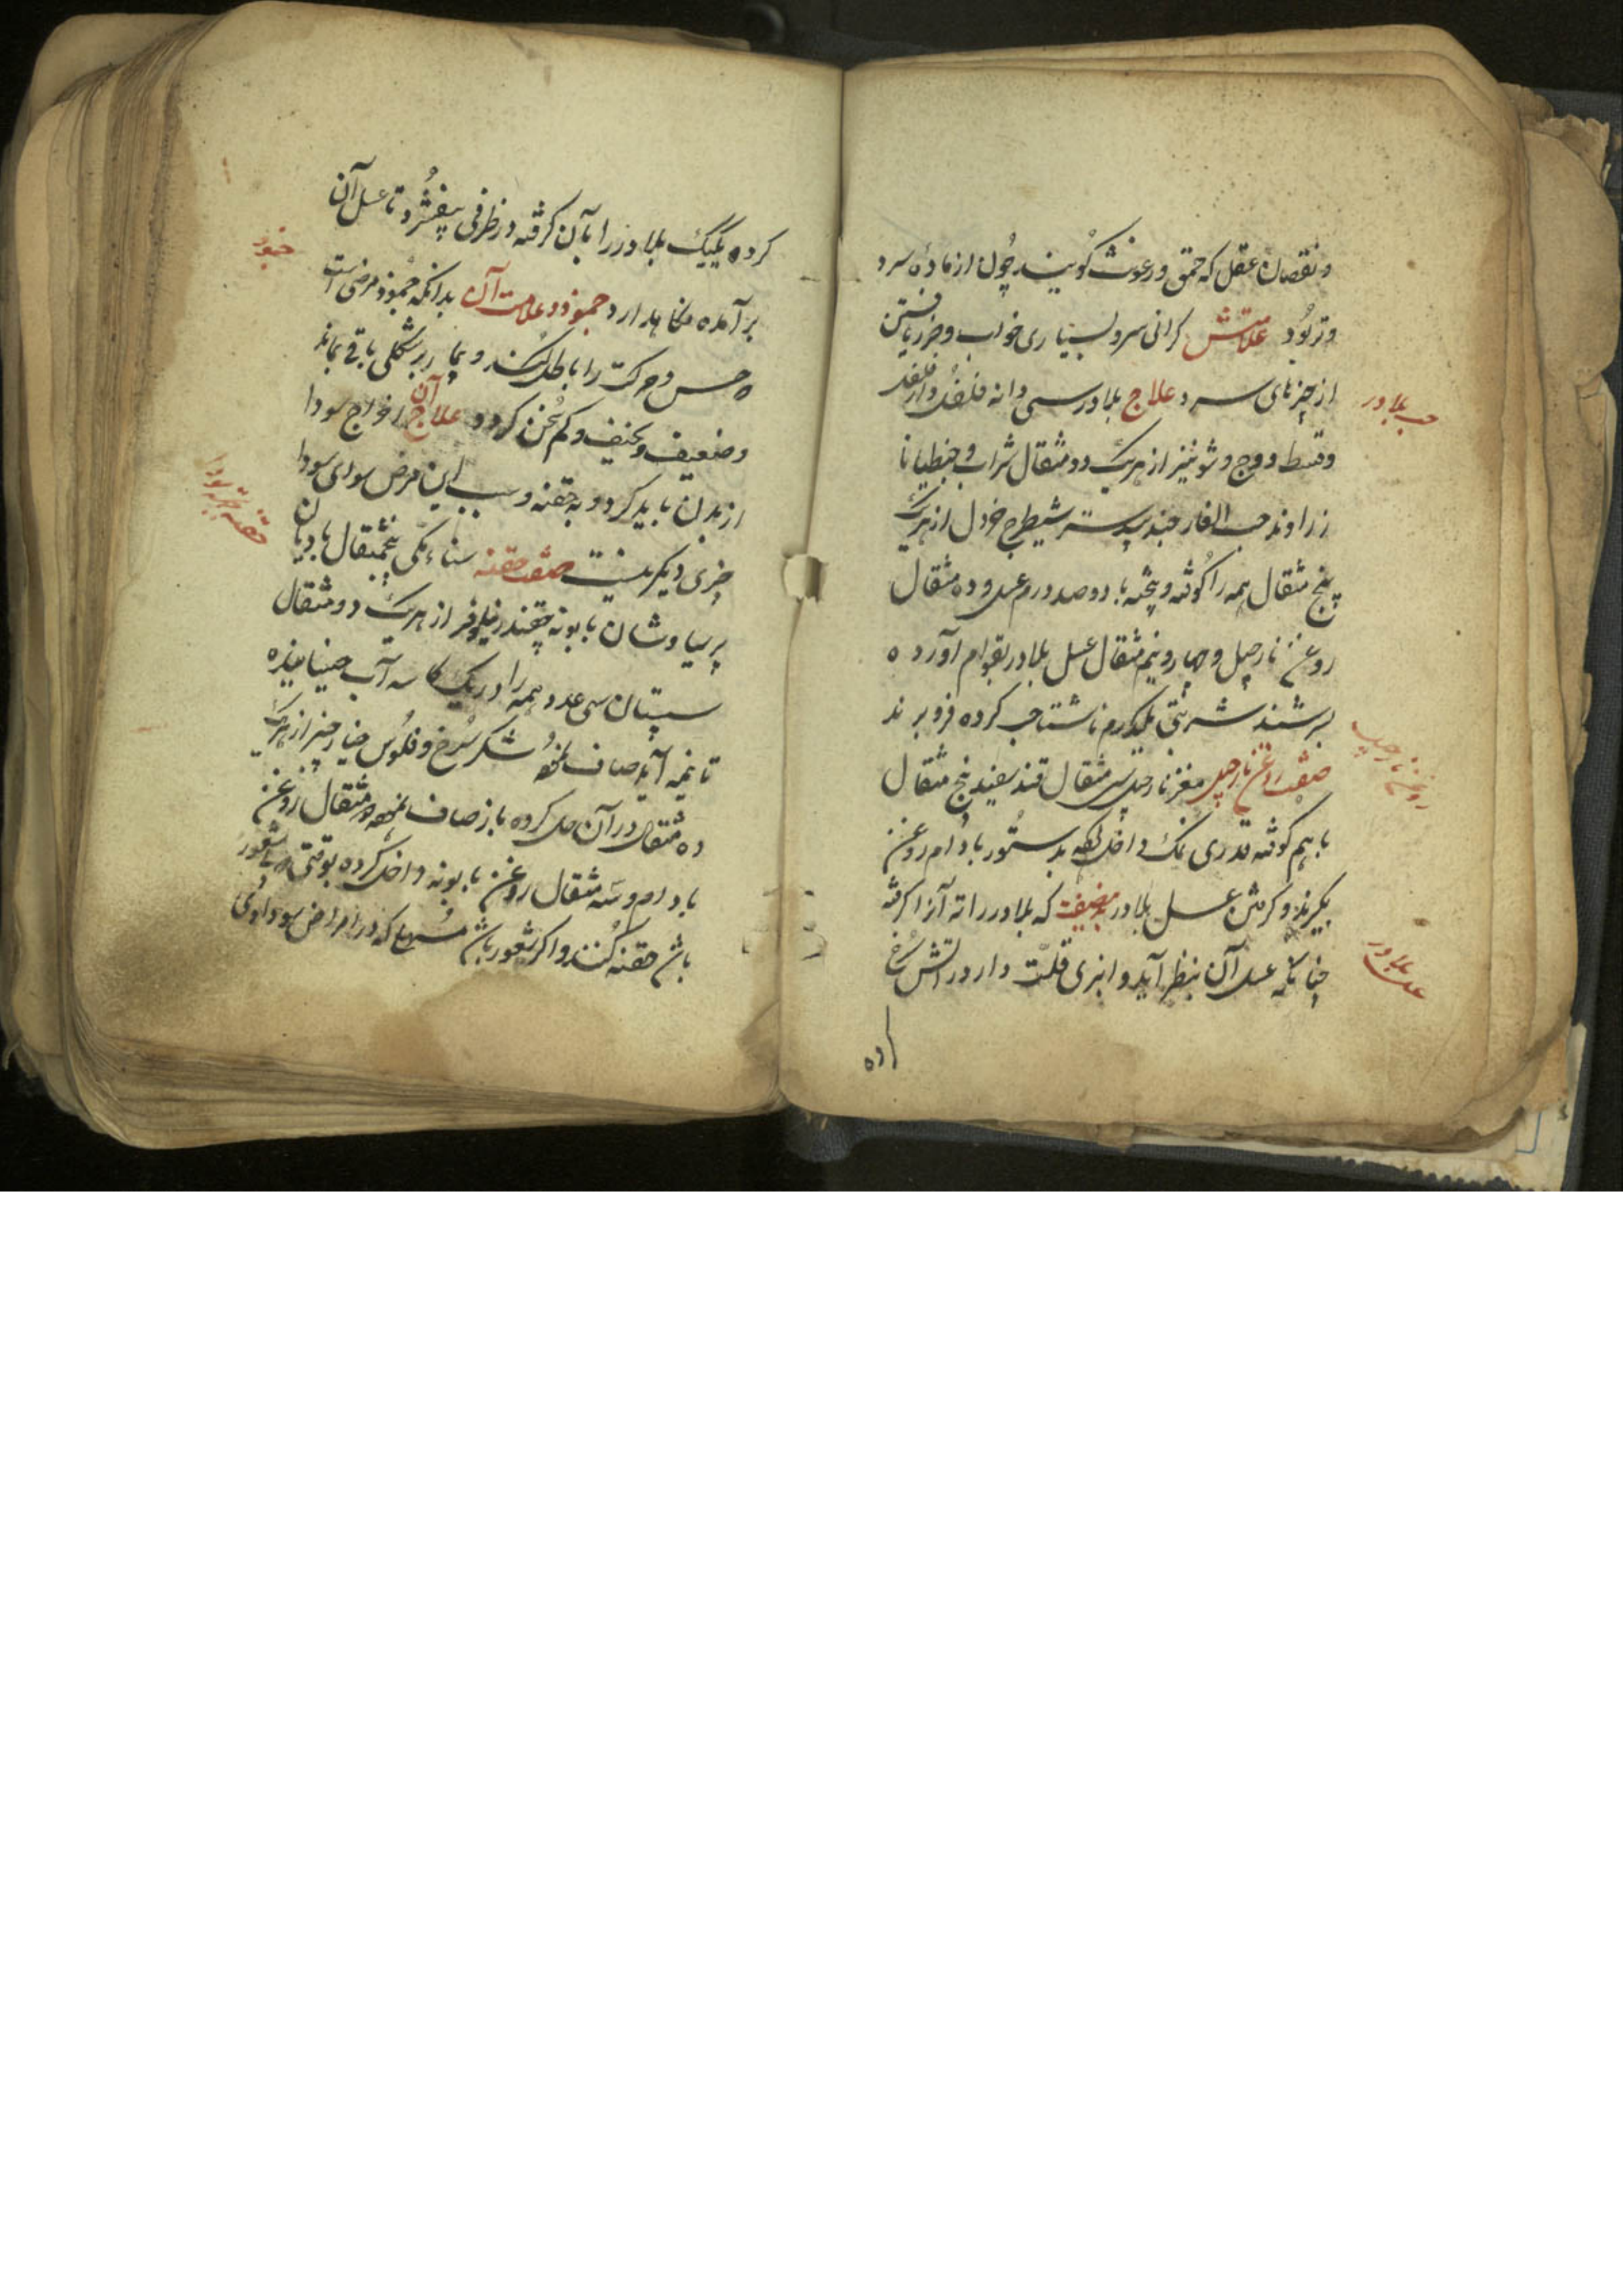 و نقصان عقل که حمق و رعونت کویند چون از ماده سرد
و تر بود علامتش کرانی سر و بسیاری خواب و ضرر یافتن
از چیزهای سرد علاج بلادر سی دانه فلفل دارفلفل
حب بلادر
و قسط و وج و شونیز از هریک دو مثقال شراب و جنطیانا
زراوند حب الغار جندبیدستر شیطرج خردل از هریک
پنج مثقال همه را کوفته و پخته با دوصد درم عسل و ده مثقال
روغن نارجیل و چهار و نیم مثقال عسل بلادر بقوام آورده
بسرشند شربتی یکدرم ناشتا حب کرده فرو برند
روغن نارجیل
صفت روغن نارجیل مغز نارجیل سی مثقال قند سفید پنج مثقال
با هم کوفته قدری نمک داخل نموده بدستور بادام روغن
بکیرند و کرفتن عسل بلادر بدینصفت که بلادر را ته آنرا کرفته
عسل بلادر
چنانکه عسل آن بنظر آید و انبری قلت دار در آتش سرخ
کرده
کرده یکیک بلادر را بآن کرفته در ظرفی بیفشرد تا عسل آن
جمود
بر آمده نکاهدارد جمود و علامت آن بدانکه جمود مرضی است
که حس و حرکت را باطل کند و بیمار بر شکلی باقی بماند
و ضعیف و نحیف و کم سخن کردد علاج آن اخراج سودا
از بدن باید کرد و به حقنه و سبب این مرض سوای سودا
چیزی دیکر نیست صفت حقنه سناء مکی پنجمثقال بادیان
حقنه جهة سودا
پرسیاوشان بابونه چغندر نیلوفر از هریک دو مثقال
سپستان سی عدد همه را در یک کاسه آب جوشانیده
تا نیمه آید صاف نموده شکر سرخ و فلوس خیارچنبر از هریک
ده مثقال در آن حل کرده باز صاف نموده دو مثقال روغن
بادام و سه مثقال روغن بابونه داخل کرده بوقتی که با شعور
باشد حقنه کنند و اکر شعور باشد مسهلها که در امراض سوداوی